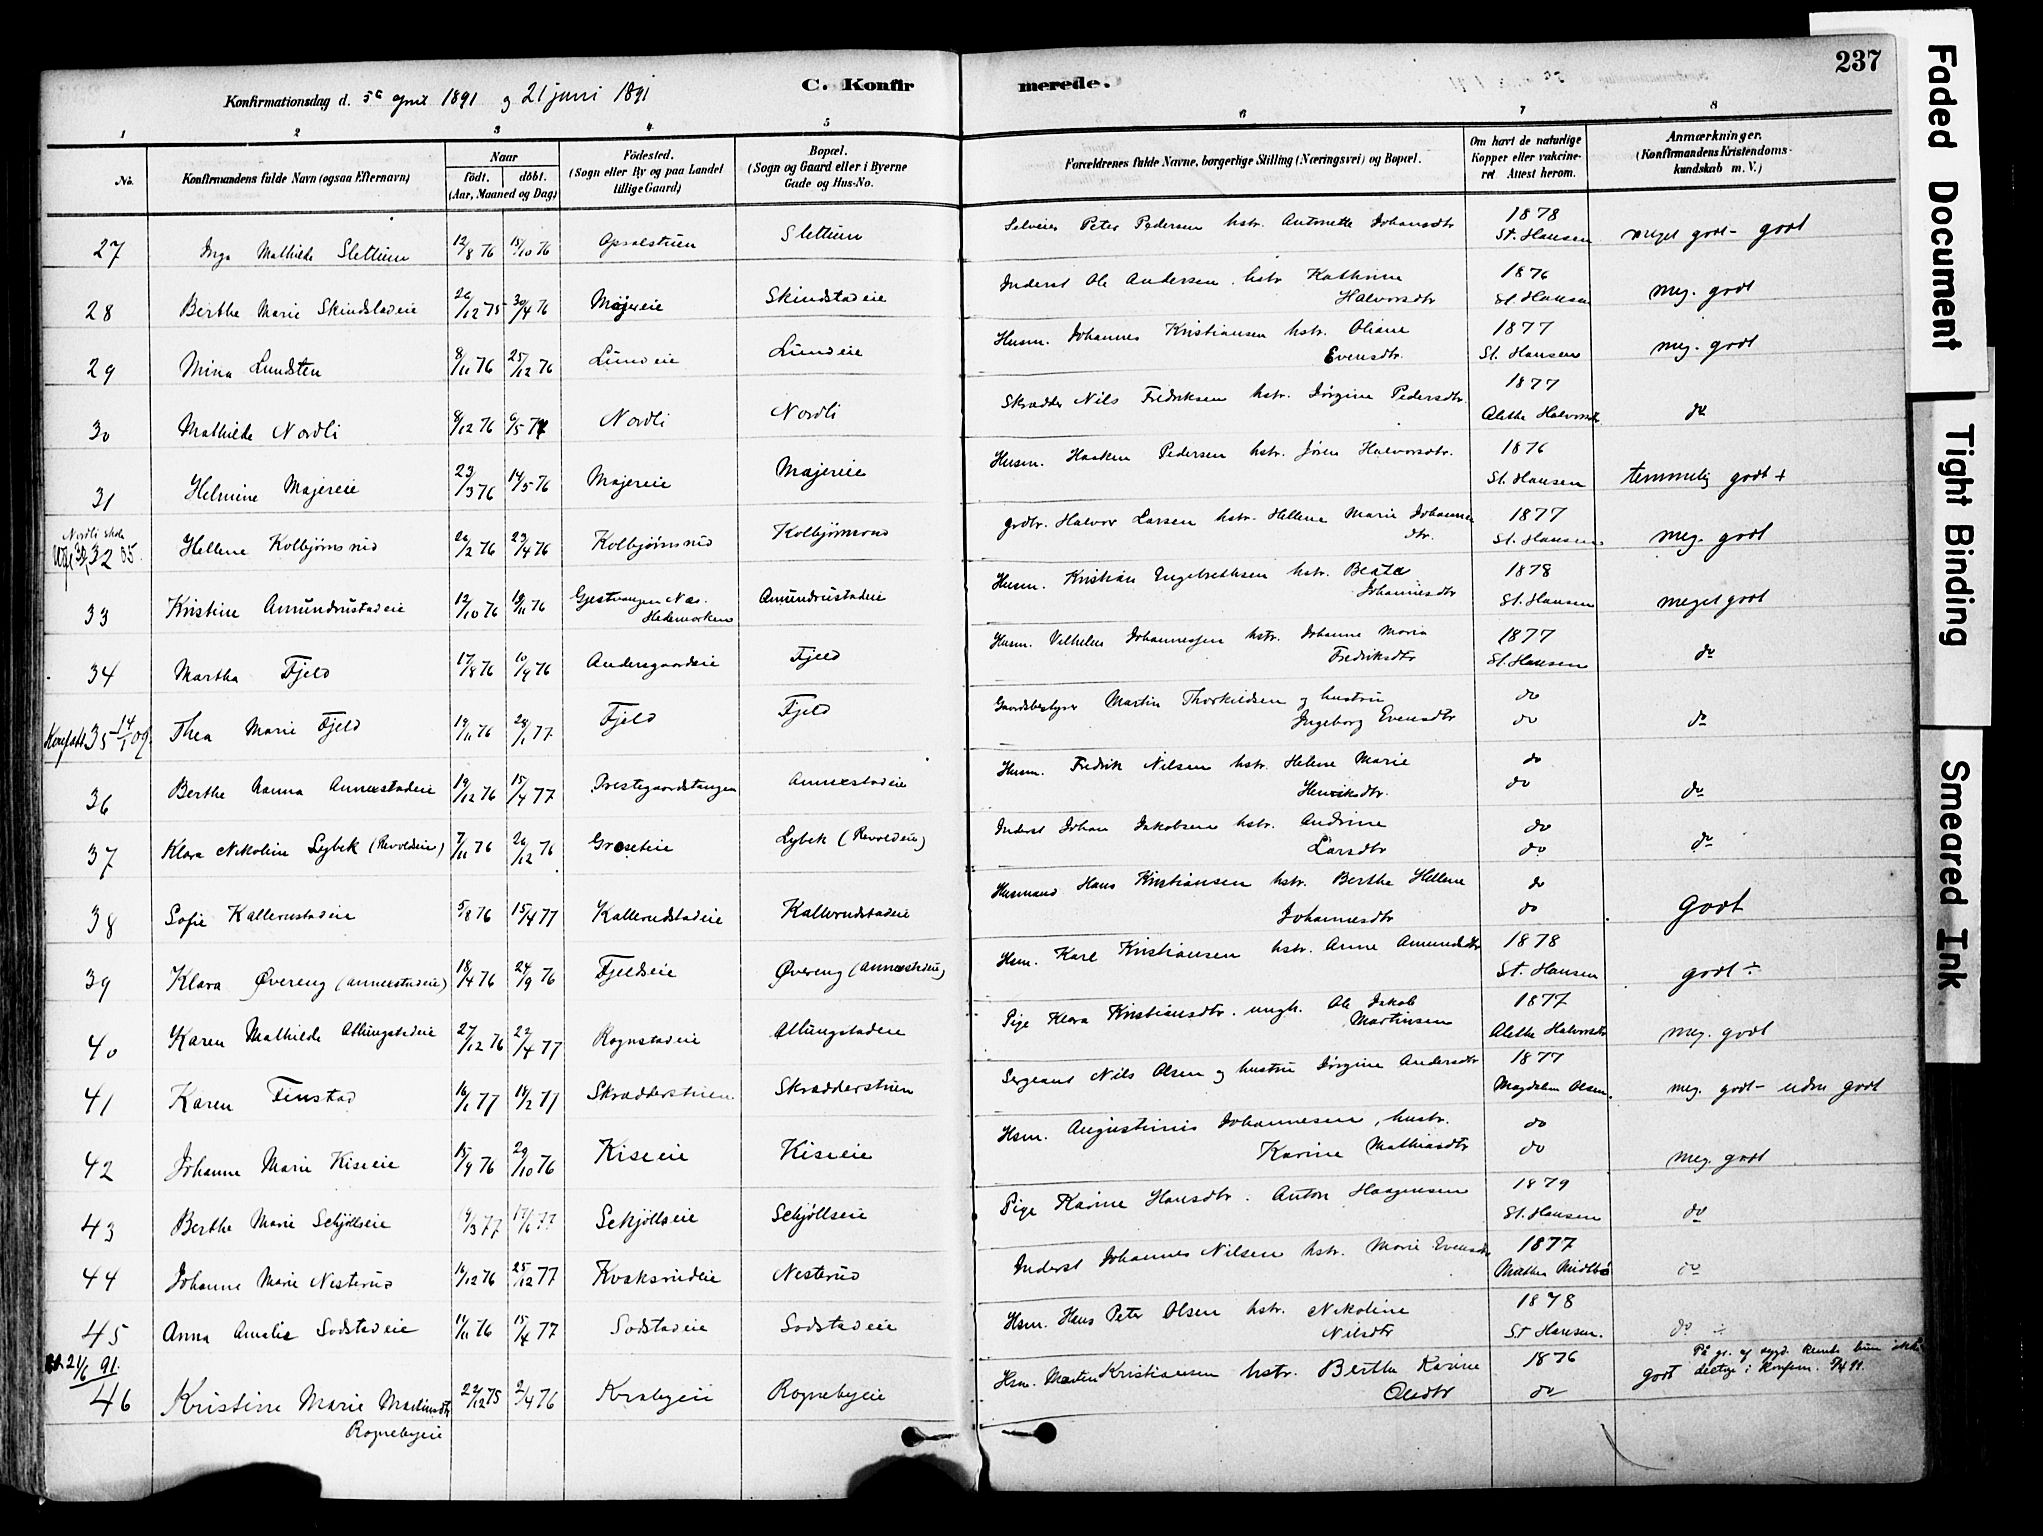 237
C. Konfirmerede.
Konfirmationsdag d. 5te April 1891 og 21 juni 1891
1 2 3 4 5 6 7 8
No. Konfirmandens fulde Navn (ogsaa Efternavn) Naar født. døbt. (Aar, Maaned og Dag) Fødested. (Sogn eller By og paa Landet tillige Gaard) Bopæl. (Sogn og Gaard eller i Byerne Gade og Hus-No. Forældrenes fulde Navne, borgerlige Stilling (Næringsvei) og Bopæl. Om havt de naturlige Kopper eller vakcineret Attest herom. Anmærkninger. (Konfirmandens Kristendomskundskab m. V.)
27 Inga Mathilde Slettum 12/8 76 15/10 76 Opsalstuen Slettum Selveier Peter Pedersen hstr. Antonette Johansdtr 1878 St. Hansen meget godt - godt
28 Berthe Marie Skindstadeie 26/12 75 30/4 76 Majereie Skindstadeie Inderst Ole Andersen hstr. Kathrine Halvorsdtr 1876 St. Hansen meg. godt
29 Mina Lundsten 8/11 76 25/12 76 Lundeie Lundeie Husm. Johannes Kristiansen hstr. Oliane Evensdtr. 1877 St. Hansen meg. godt
30 Mathilde Nordli 9/12 76 6/5 77 Nordli Nordli Skrædder Nils Fredriksen hstr. Jørgine Pedersdtr. 1877 Alethe Halvorsdt do
31 Helmine Majereie 23/3 76 14/5 76 Majereie Majereie Husm. Haaken Pedersen hstr. Jøren Halvorsdtr. 1876 St. Hansen temmelig godt +
Nordli skole
32 Hellene Kolbjørnsrud 26/2 76 23/4 76 Kolbjørnsrud Kolbjørnsrud grdbr. Halvor Larsen hstr. Hellene Marie Johannesdtr. 1877 St. Hansen. meg. godt
33 Kristine Amundrustadeie 12/10 76 19/11 76 Gjestvangen Næs. Hedemarken Amundrustadeie Husm. Kristian Engebrethsen hstr. Beate Johannesdtr 1878 St. Hansen meget godt
34 Martha Fjeld 17/8 76 10/9 76 Andersgaardeie Fjeld Husm. Vilhelm Johannessen hstr. Johanne Maria Fredriksdtr 1877 St. Hansen do
35 14/1 09. Thea Marie Fjeld 19/11 76 28/1 77 Fjeld Fjeld Gaardsbestyrer Martin Thorkildsen og hustru Ingeborg Evensdtr do do do
36 Berthe Nanna Annexstadeie 19/12 76 15/4 77 Prestegaardstangen Annexstadeie Husm. Fredrik Nilsen hstr. Helene Marie Henriksdtr. do do do
37 Klara Nikoline Lybek (Revoldeie) 7/11 76 26/12 76 Grøseteie Lybek (Revoldeie) Inderst Johan Jakobsen hstr. Andrine Larsdtr do do do
38 Sofie Kallerustadeie 5/8 76 15/4 77 Kallerudstadeie Kallerudstadeie Husmand Hans Kristiansen hstr. Berthe Hellene Johannesdtr do do Godt
39 Klara Øvereng (annexstadeie) 18/4 76 24/9 76 Fjeldseie Øvereng (Annexstadeie) Hsm. Karl Kristiansen hstr. Anne Amundsdtr 1878 St. Hansen godt ÷
40 Karen Mathilde Attingstadeie 27/12 76 22/4 77 Rognstadeie Attingstadeie Pige Klara Kristiansdtr. ungk. Ole Jakob Martinsen 1877 Alethe Halvorsdtr meg. godt
41 Karen Finstad 16/1 77 18/2 77 Skrædderstuen Skrædderstuen Sergeant Nils Olsen og hustru Jørgine Andersdtr 1877 Magdalen Olsen. meg. godt - udm godt
42 Johanne Marie Kiseeie 15/9 76 29/10 76 Kiseeie Kiseeie Hsm. Augustinus Johannesen, hustr. Karine Mathiasdtr do do meg. godt
43 Berthe Marie Schjøllseie 19/3 77 17/6 77 Schjøllseie Schjøllseie Pige Karine Hansdtr. Anton Haagensen 1879 St. Hansen do
44 Johanne Marie Nesterud 16/12 76 25/12 77 Kvaksrudeie Nesterud Inderst Johannes Nilsen hstr. Marie Evensdtr 1877 Mathea Midtbø do
45 Anna Amalie Sodstadeie 19/11 76 15/4 77 Sodstadeie Sodstadeie Hsm. Hans Peter Olsen hstr. Nikoline Nilsdtr 1878 St Hansen. do ÷
21/6 91.
46 Kristine Marie Martinsdtr Rognebyeie 22/12 75 2/4 76 Krabyeie Rognebyeie Hsm. Martin Kristiansen hstr. Berthe Karine Olsdtr 1876 do godt På gr. af sygd. kunde hun ikke deltage i konfirm. 5/4 91.
Faded Document
Tight Binding
Smeared Ink